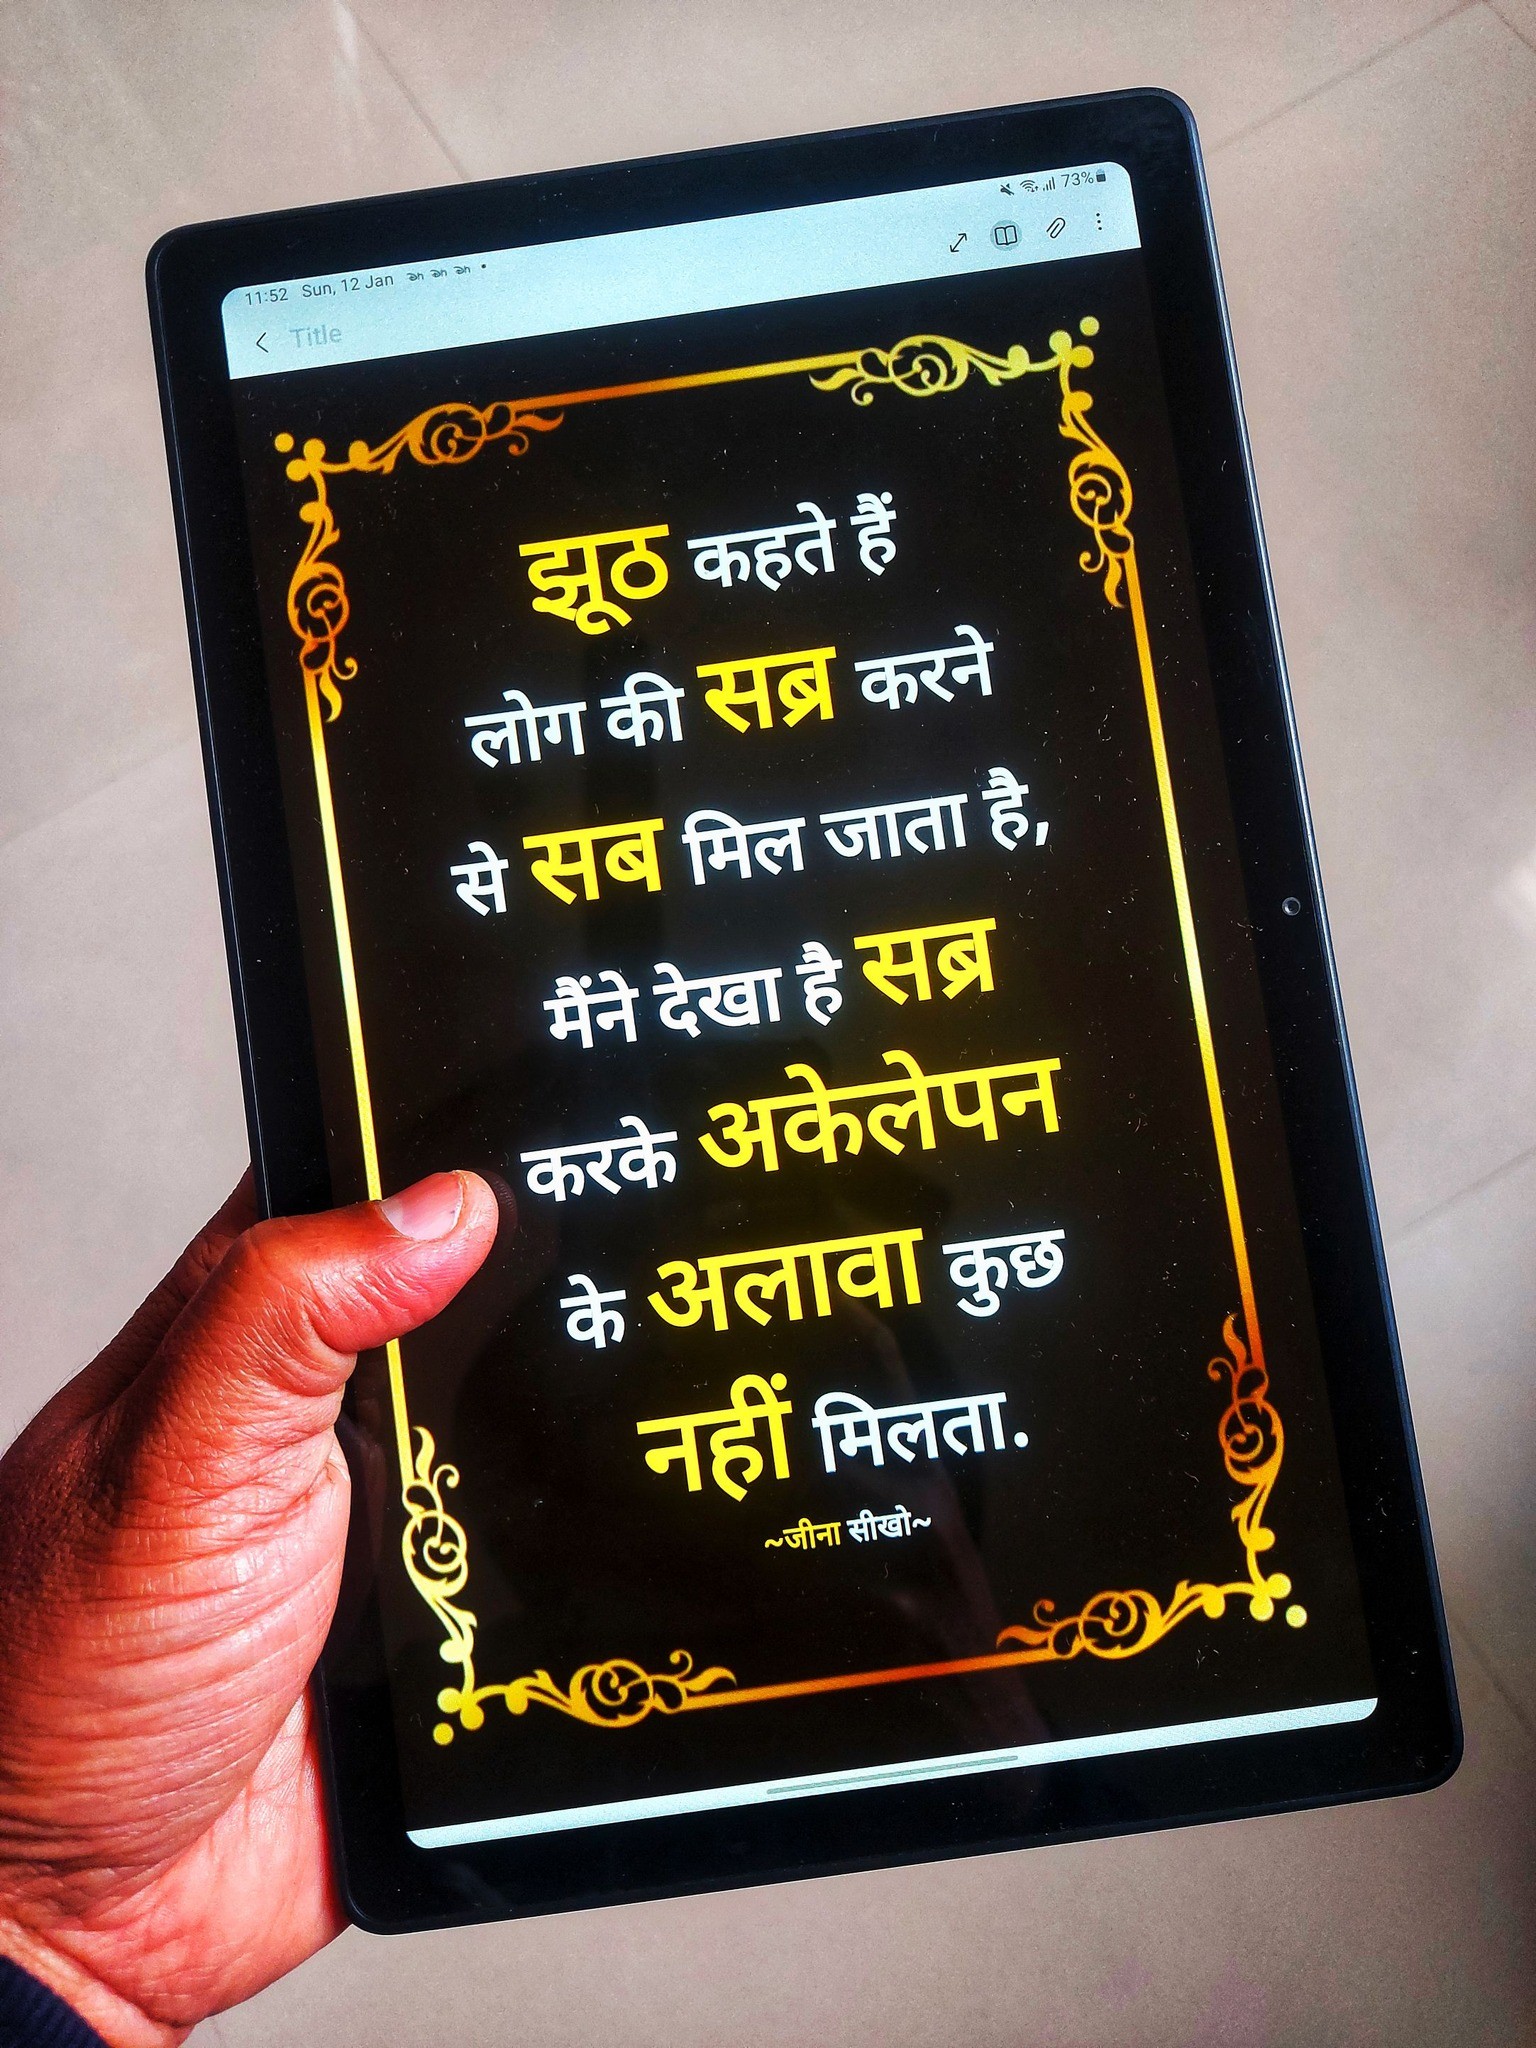 11:52 Sun, 12 Jan
73%
Title
झूठ कहते हैं
लोग की सब्र करने
से सब मिल जाता है,
मैंने देखा है सब्र
करके अकेलेपन
के अलावा कुछ
नहीं मिलता.
~जीना सीखो~